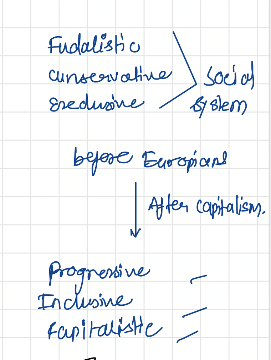 Fudalistic
Cunservative Social
Exedusive System
before Europians
After capitalism.
Progressive
Inclusive
Capitalistic